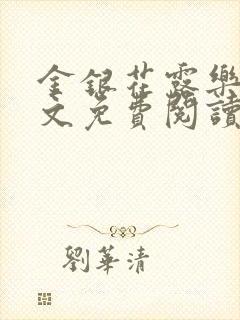 金銀花露樂
文免費閱讀
劉華清